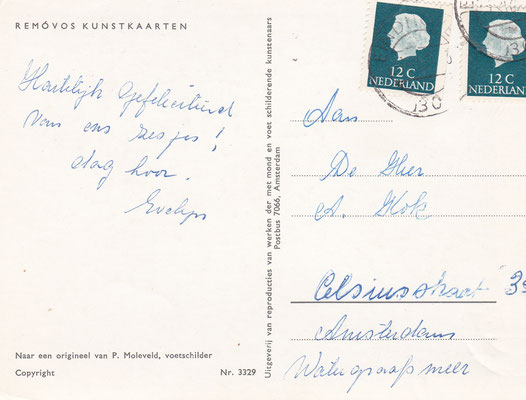 REMÓVOS KUNSTKAARTEN
Hartelijk gefeliciteerd
van ons zesjes!
dag hoor.
Evelyn
Naar een origineel van P. Moleveld, voetschilder
Copyright Nr. 3329
Uitgeverij van reproducties van werken der met mond en voet schilderende kunstenaars
Postbus 7066, Amsterdam
12 C
NEDERLAND
12 C
NEDERLAND
Aan
De Hher
A. Kok
Celsiusstraat 39
Amsterdam
Watergraafsmeer